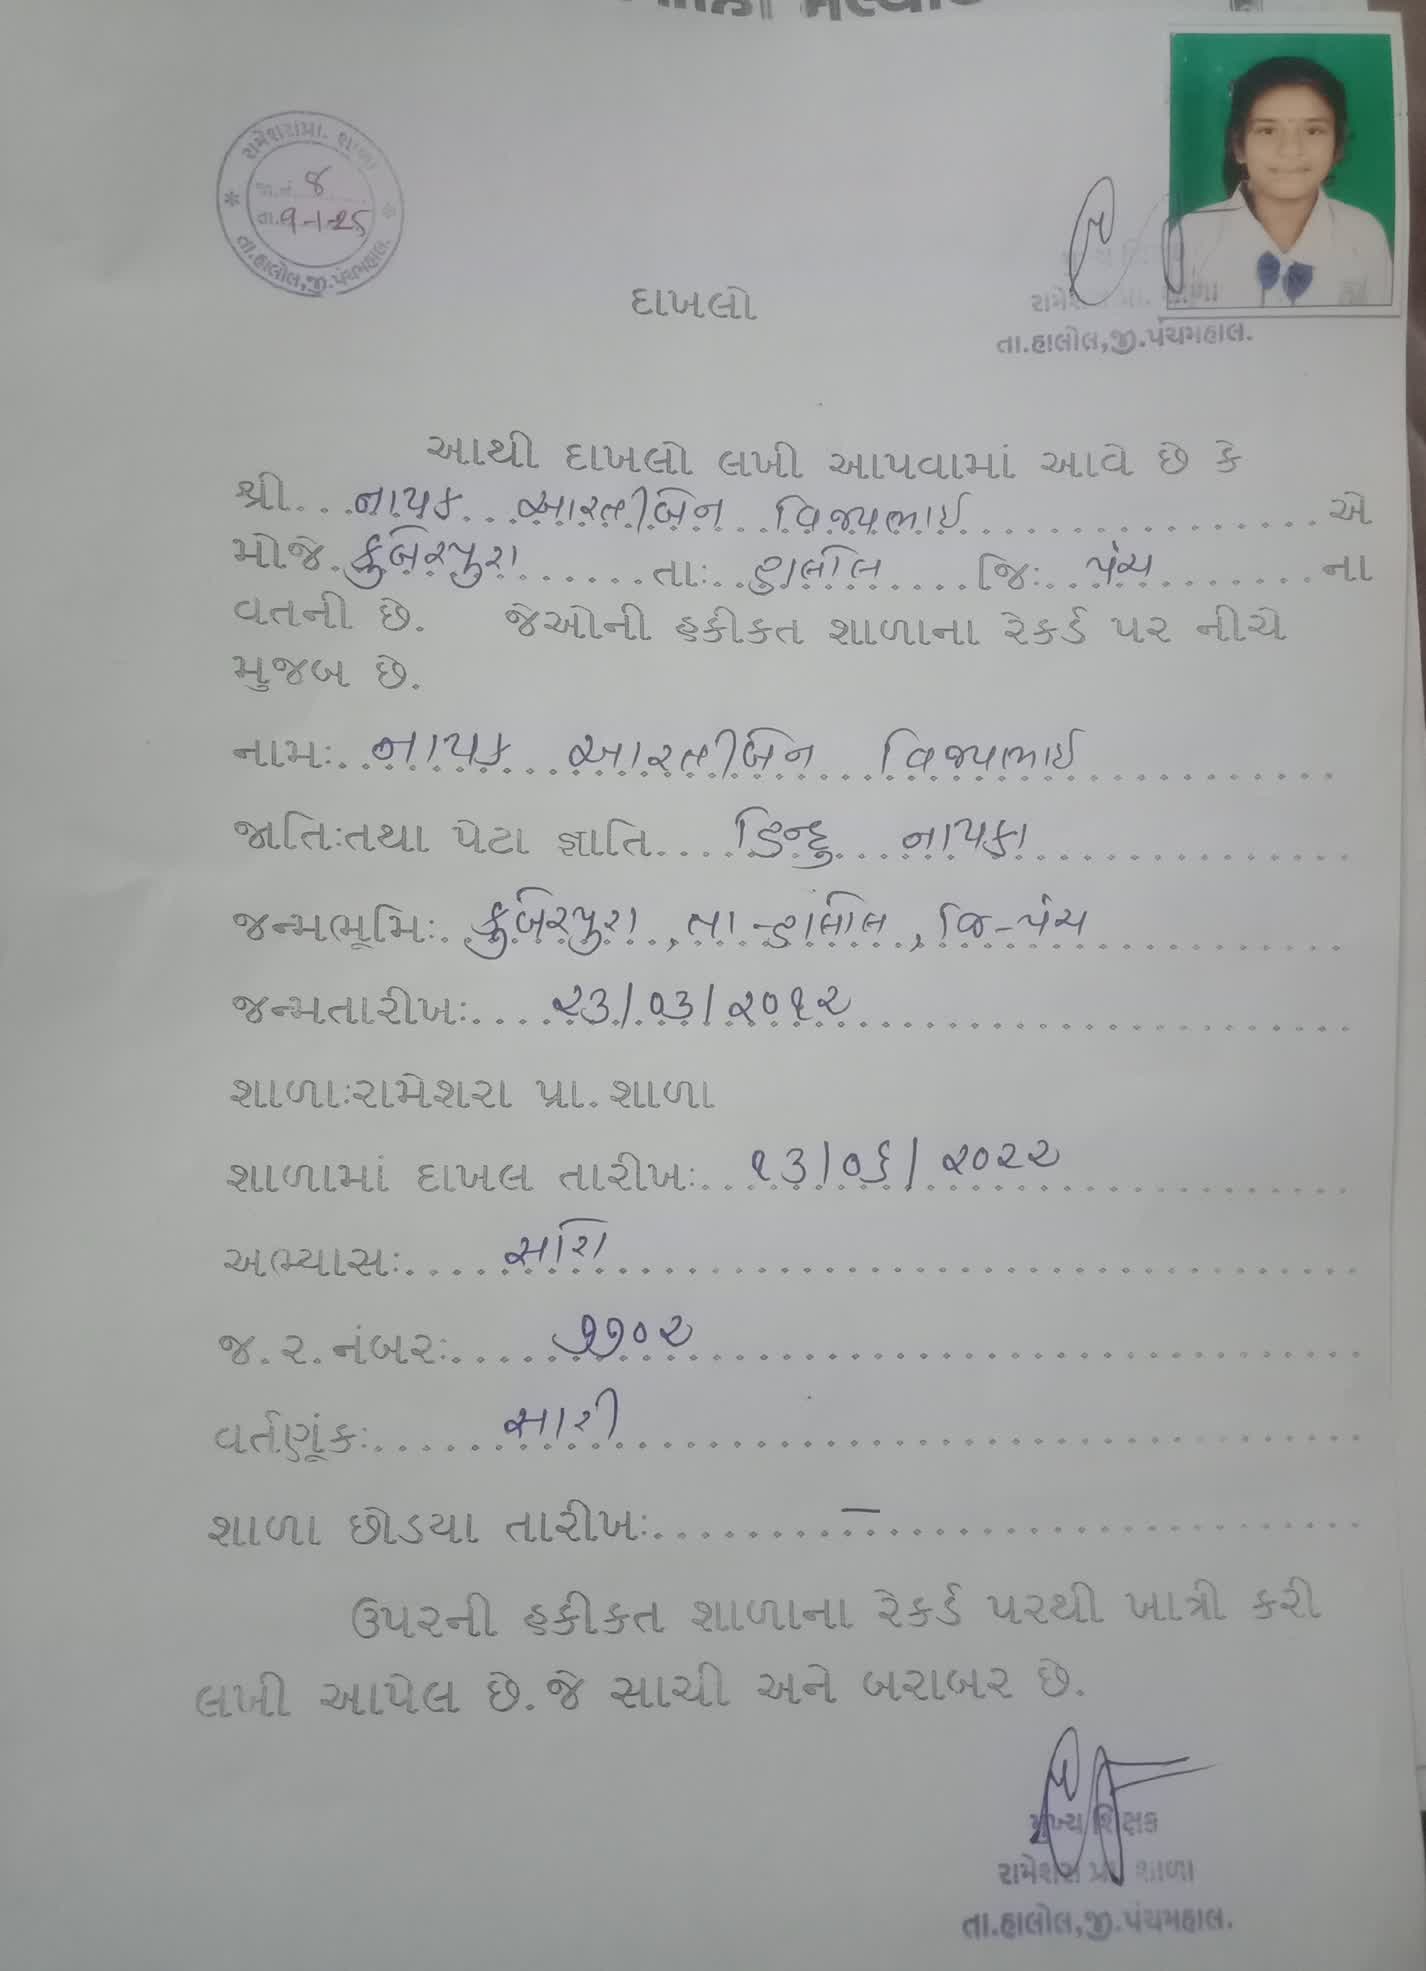 રામેશરા પ્રા. શાળા
જા.નં. 8
તા. 9-1-25
તા.હાલોલ,જી.પંચમહાલ.
રામેશરા પ્રા. શાળા
તા.હાલોલ,જી.પંચમહાલ.
દાખલો
આથી દાખલો લખી આપવામાં આવે છે કે
શ્રી... નાયક આરતીબેન વિજયભાઈ ... એ
મોજે. કુબેરપુરા ... તાઃ.. હાલોલ ... જિઃ.. પંચ ... ના
વતની છે. જેઓની હકીકત શાળાના રેકર્ડ પર નીચે
મુજબ છે.
નામઃ.. નાયક આરતીબેન વિજયભાઈ
જાતિઃતથા પેટા જ્ઞાતિ.... હિન્દુ નાયકા
જન્મભૂમિઃ. કુબેરપુરા, તા-હાલોલ, જિ-પંચ
જન્મતારીખઃ.... ૨૩/૦૩/૨૦૧૨
શાળાઃરામેશરા પ્રા.શાળા
શાળામાં દાખલ તારીખઃ.. ૧૩/૦૬/૨૦૨૨
અભ્યાસઃ....
જ.ર.નંબરઃ....
વર્તણૂંકઃ.... સારી
શાળા છોડયા તારીખઃ.... —
ઉપરની હકીકત શાળાના રેકર્ડ પરથી ખાત્રી કરી
લખી આપેલ છે.જે સાચી અને બરાબર છે.
મુખ્ય શિક્ષક
રામેશરા પ્રા શાળા
તા.હાલોલ,જી.પંચમહાલ.